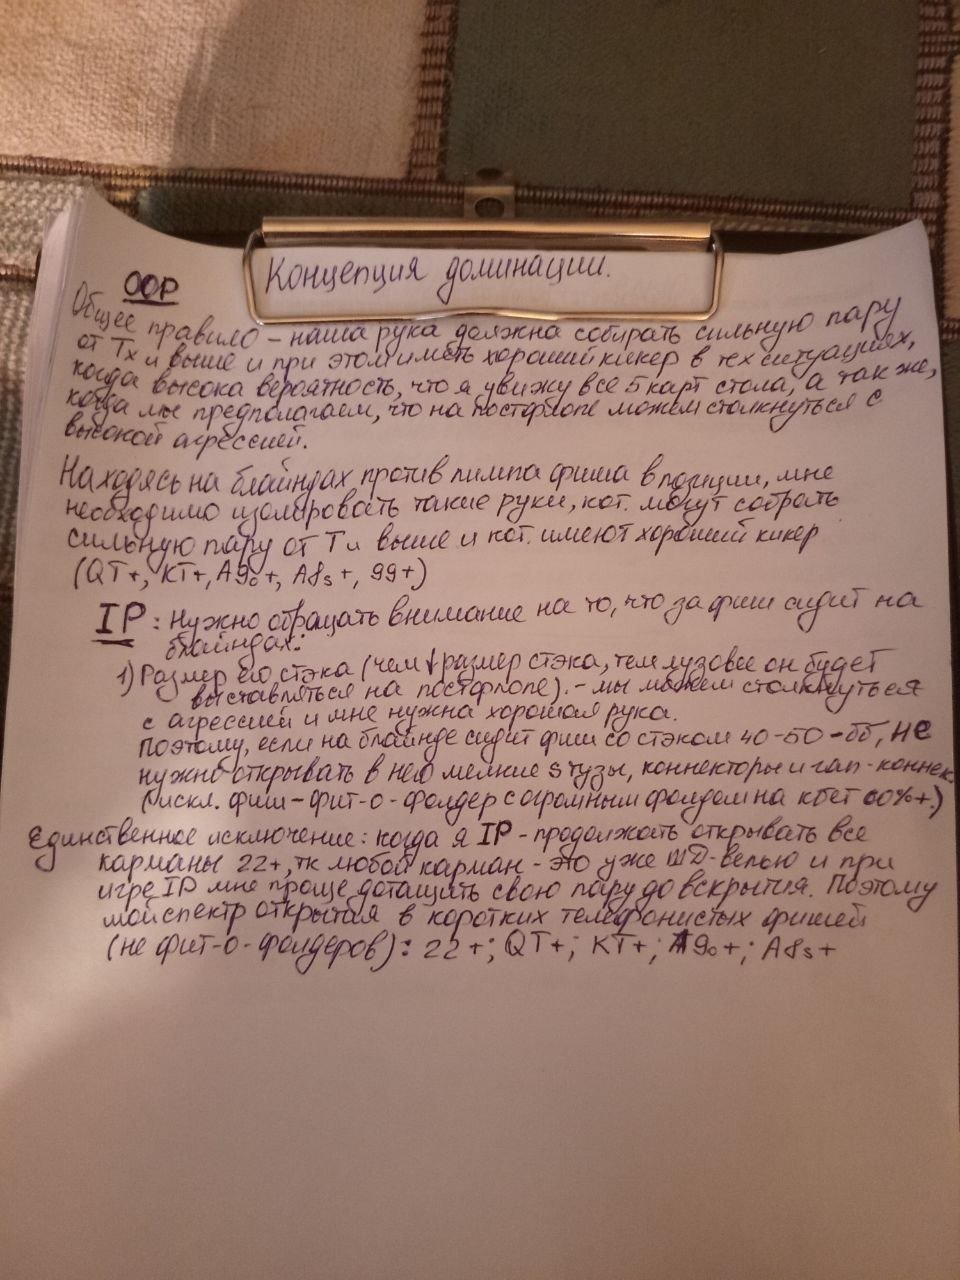 Концепция доминации.
OOP
Общее правило – наша рука должна собирать сильную пару
от Тх и выше и при этом иметь хороший кикер в тех ситуациях,
когда высока вероятность, что я увижу все 5 карт стола, а так же,
когда мы предполагаем, что на постфлопе можем столкнуться с
высокой агрессией.
Находясь на блайндах против лимпа фиша в позиции, мне
необходимо изолировать такие руки, кот. могут собрать
сильную пару от Т и выше и кот. имеют хороший кикер
(QT+, KT+, A9o+, A8s+, 99+)
IP: Нужно обращать внимание на то, что за фиш сидит на
блайндах:
1) Размер его стэка (чем ↓ размер стэка, тем лузовее он будет
выставляться на постфлопе). – мы можем столкнуться
с агрессией и мне нужна хорошая рука.
Поэтому, если на блайнде сидит фиш со стэком 40-50-бб, не
нужно открывать в него мелкие s тузы, коннекторы и гап-коннек.
(искл. фиш-фит-о-фолдер с огромным фолдом на кбет 60%+.)
Единственное исключение: когда я IP - продолжать открывать все
карманы 22+, тк любой карман - это уже ШД-велью и при
игре IP мне проще дотащить свою пару до вскрытия. Поэтому
мой спектр открытия в коротких телефонистых фишей
(не фит-о-фолдеров): 22+; QT+; KT+; A9o+; A8s+